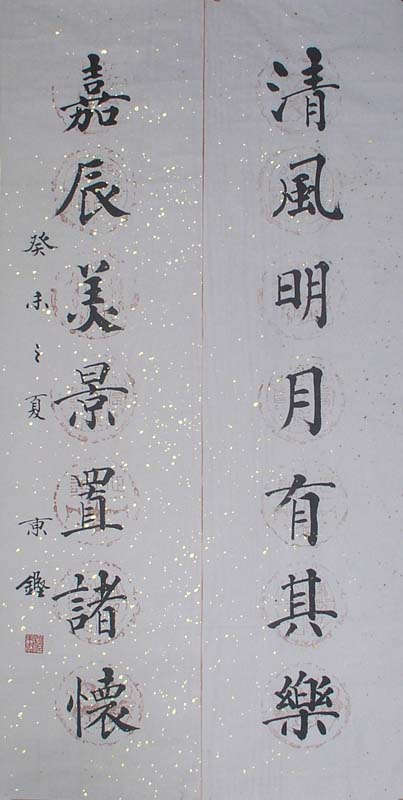 清風明月有其樂
嘉辰美景置諸懷
癸未之夏
東